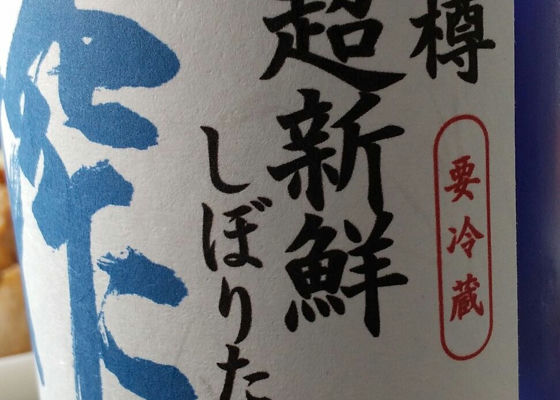 樽
要冷蔵
超新鮮
しぼりた